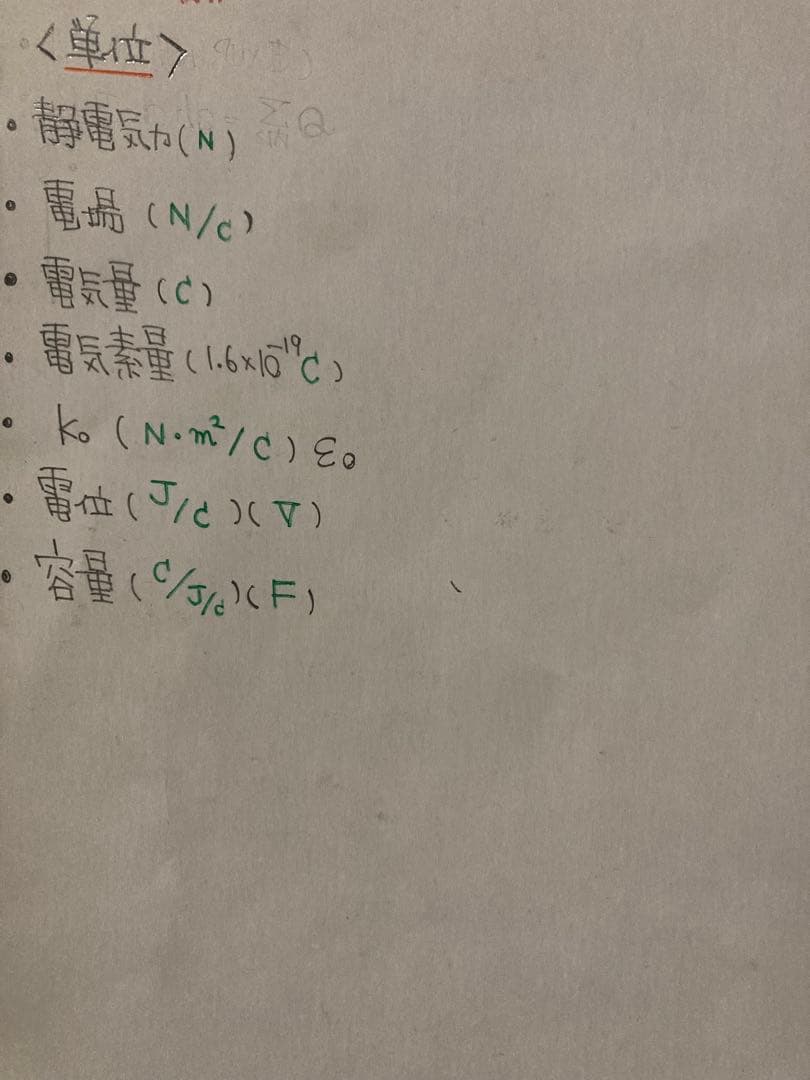 <単位>
・静電気力(N)
・電場(N/C)
・電気量(C)
・電気素量(1.6×10⁻¹⁹C)
・k₀(N・m²/C) ε₀
・電位(J/C)(V)
・容量(C/J/C)(F)